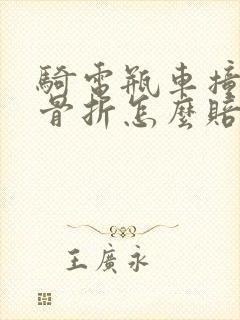 騎電瓶車撞
骨折怎麼賠
王廣永